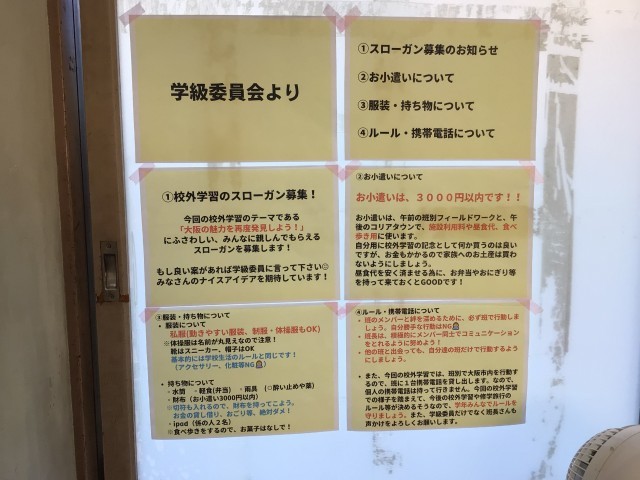 学級委員会より
①スローガン募集のお知らせ
②お小遣いについて
③服装・持ち物について
④ルール・携帯電話について
①校外学習のスローガン募集！
今回の校外学習のテーマである
「大阪の魅力を再度発見しよう！」
にふさわしい、みんなに親しんでもらえる
スローガンを募集します！
もし良い案があれば学級委員に言って下さい☺
みなさんのナイスアイデアを期待しています！
②お小遣いについて
お小遣いは、３０００円以内です！！
お小遣いは、午前の班別フィールドワークと、午
後のコリアタウンで、施設利用料や昼食代、食べ
歩き用に使います。
自分用に校外学習の記念として何か買うのは良い
ですが、お金もかかるので家族へのお土産は買わ
ないようにしましょう。
昼食代を安く済ませる為に、お弁当やおにぎり等
を持って来ておくとGOODです！
③服装・持ち物について
・服装について
私服(動きやすい服装、制服・体操服もOK)
※体操服は名前が丸見えなので注意！
靴はスニーカー、帽子はOK
基本的には学校生活のルールと同じです！
（アクセサリー、化粧等NG🙅）
・持ち物について
・水筒 ・軽食(弁当) ・雨具 （○酔い止めや薬）
・財布（お小遣い3000円以内）
※切符も入れるので、財布を持ってこよう。
お金の貸し借り、おごり等、絶対ダメ！
・ipad（係の人２名）
※食べ歩きをするので、お菓子はなしで！
④ルール・携帯電話について
・班のメンバーと絆を深めるために、必ず班で行動し
ましょう。自分勝手な行動はNG🙅
・班長は、積極的にメンバー同士でコミュニケーション
をとれるように努めよう！
・他の班と出会っても、自分達の班だけで行動するよう
にしましょう。
・また、今回の校外学習では、班別で大阪市内を行動す
るので、班に１台携帯電話を貸し出します。なので、
個人の携帯電話は持って行きません。今回の校外学習
での様子を踏まえて、今後の校外学習や修学旅行の
ルール等が決まるそうなので、学年みんなでルールを
守りましょう。また、学級委員だけでなく班長さんも
声かけをよろしくお願いします。